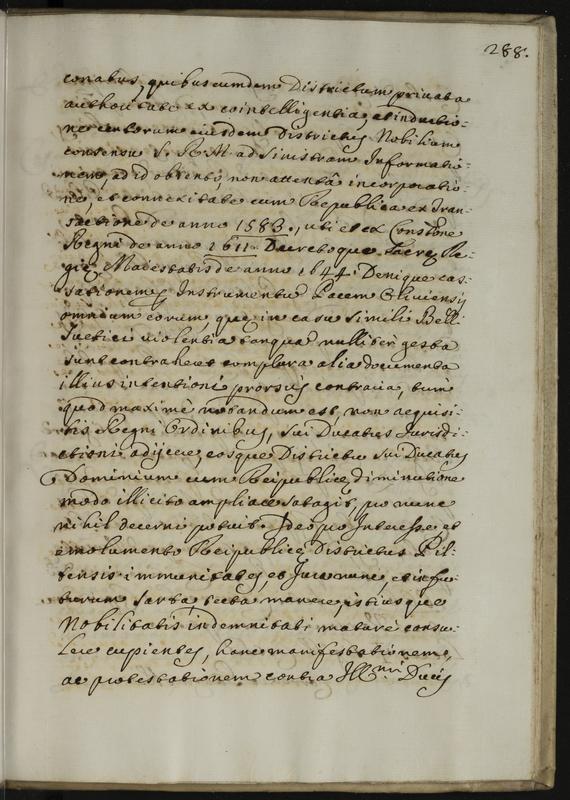 288.
conatus, quibus eundem Districtum privata
authoritate ex cointelligentia, et inductio-
ne certorum eiusdem Districtus Nobilium
consensu S. R. M. ad sinistram Informatio-
nem, ad id obtento, non attentâ incorporatio-
ne, et connexitate cum Republica ex Tran-
sactione de anno 1583., uti et ex Constōne
Regni de anno 1611. Decretoque Sacrę Re-
gię Maiestatis de anno 1644. Denique cas-
sationem Instrumentū Pacem Oliviensij
omnium eorum, quę in casu simili Belli
Suetici violentia tanquā nulliter gesta
sunt contrahens complura alia documenta
illius intentioni prorsus contraria, tum
quod maximè notandum est, non acquisi-
tis Regni Ordinibus, sui Ducatus Jurisdi-
ctioni adijcere, eosque Districtus sui Ducatus
Dominium cum Reipublicę diminutione
modo illicito ampliare satagit, pro nunc
nihil decerni potuit. Ideo pro Interesse et
emolumento Reipublicę Districtus Pil-
tensis immunitates, et Jura nunc, et in fu-
turum sarta tecta manere istiusque
Nobilitatis indemnitati maturè consu-
lere cupientes, hanc manifestationem,
ac protestationem contra Illmi Ducis